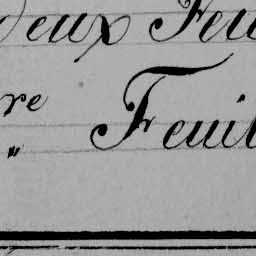 deux Feu
re
" Feuil